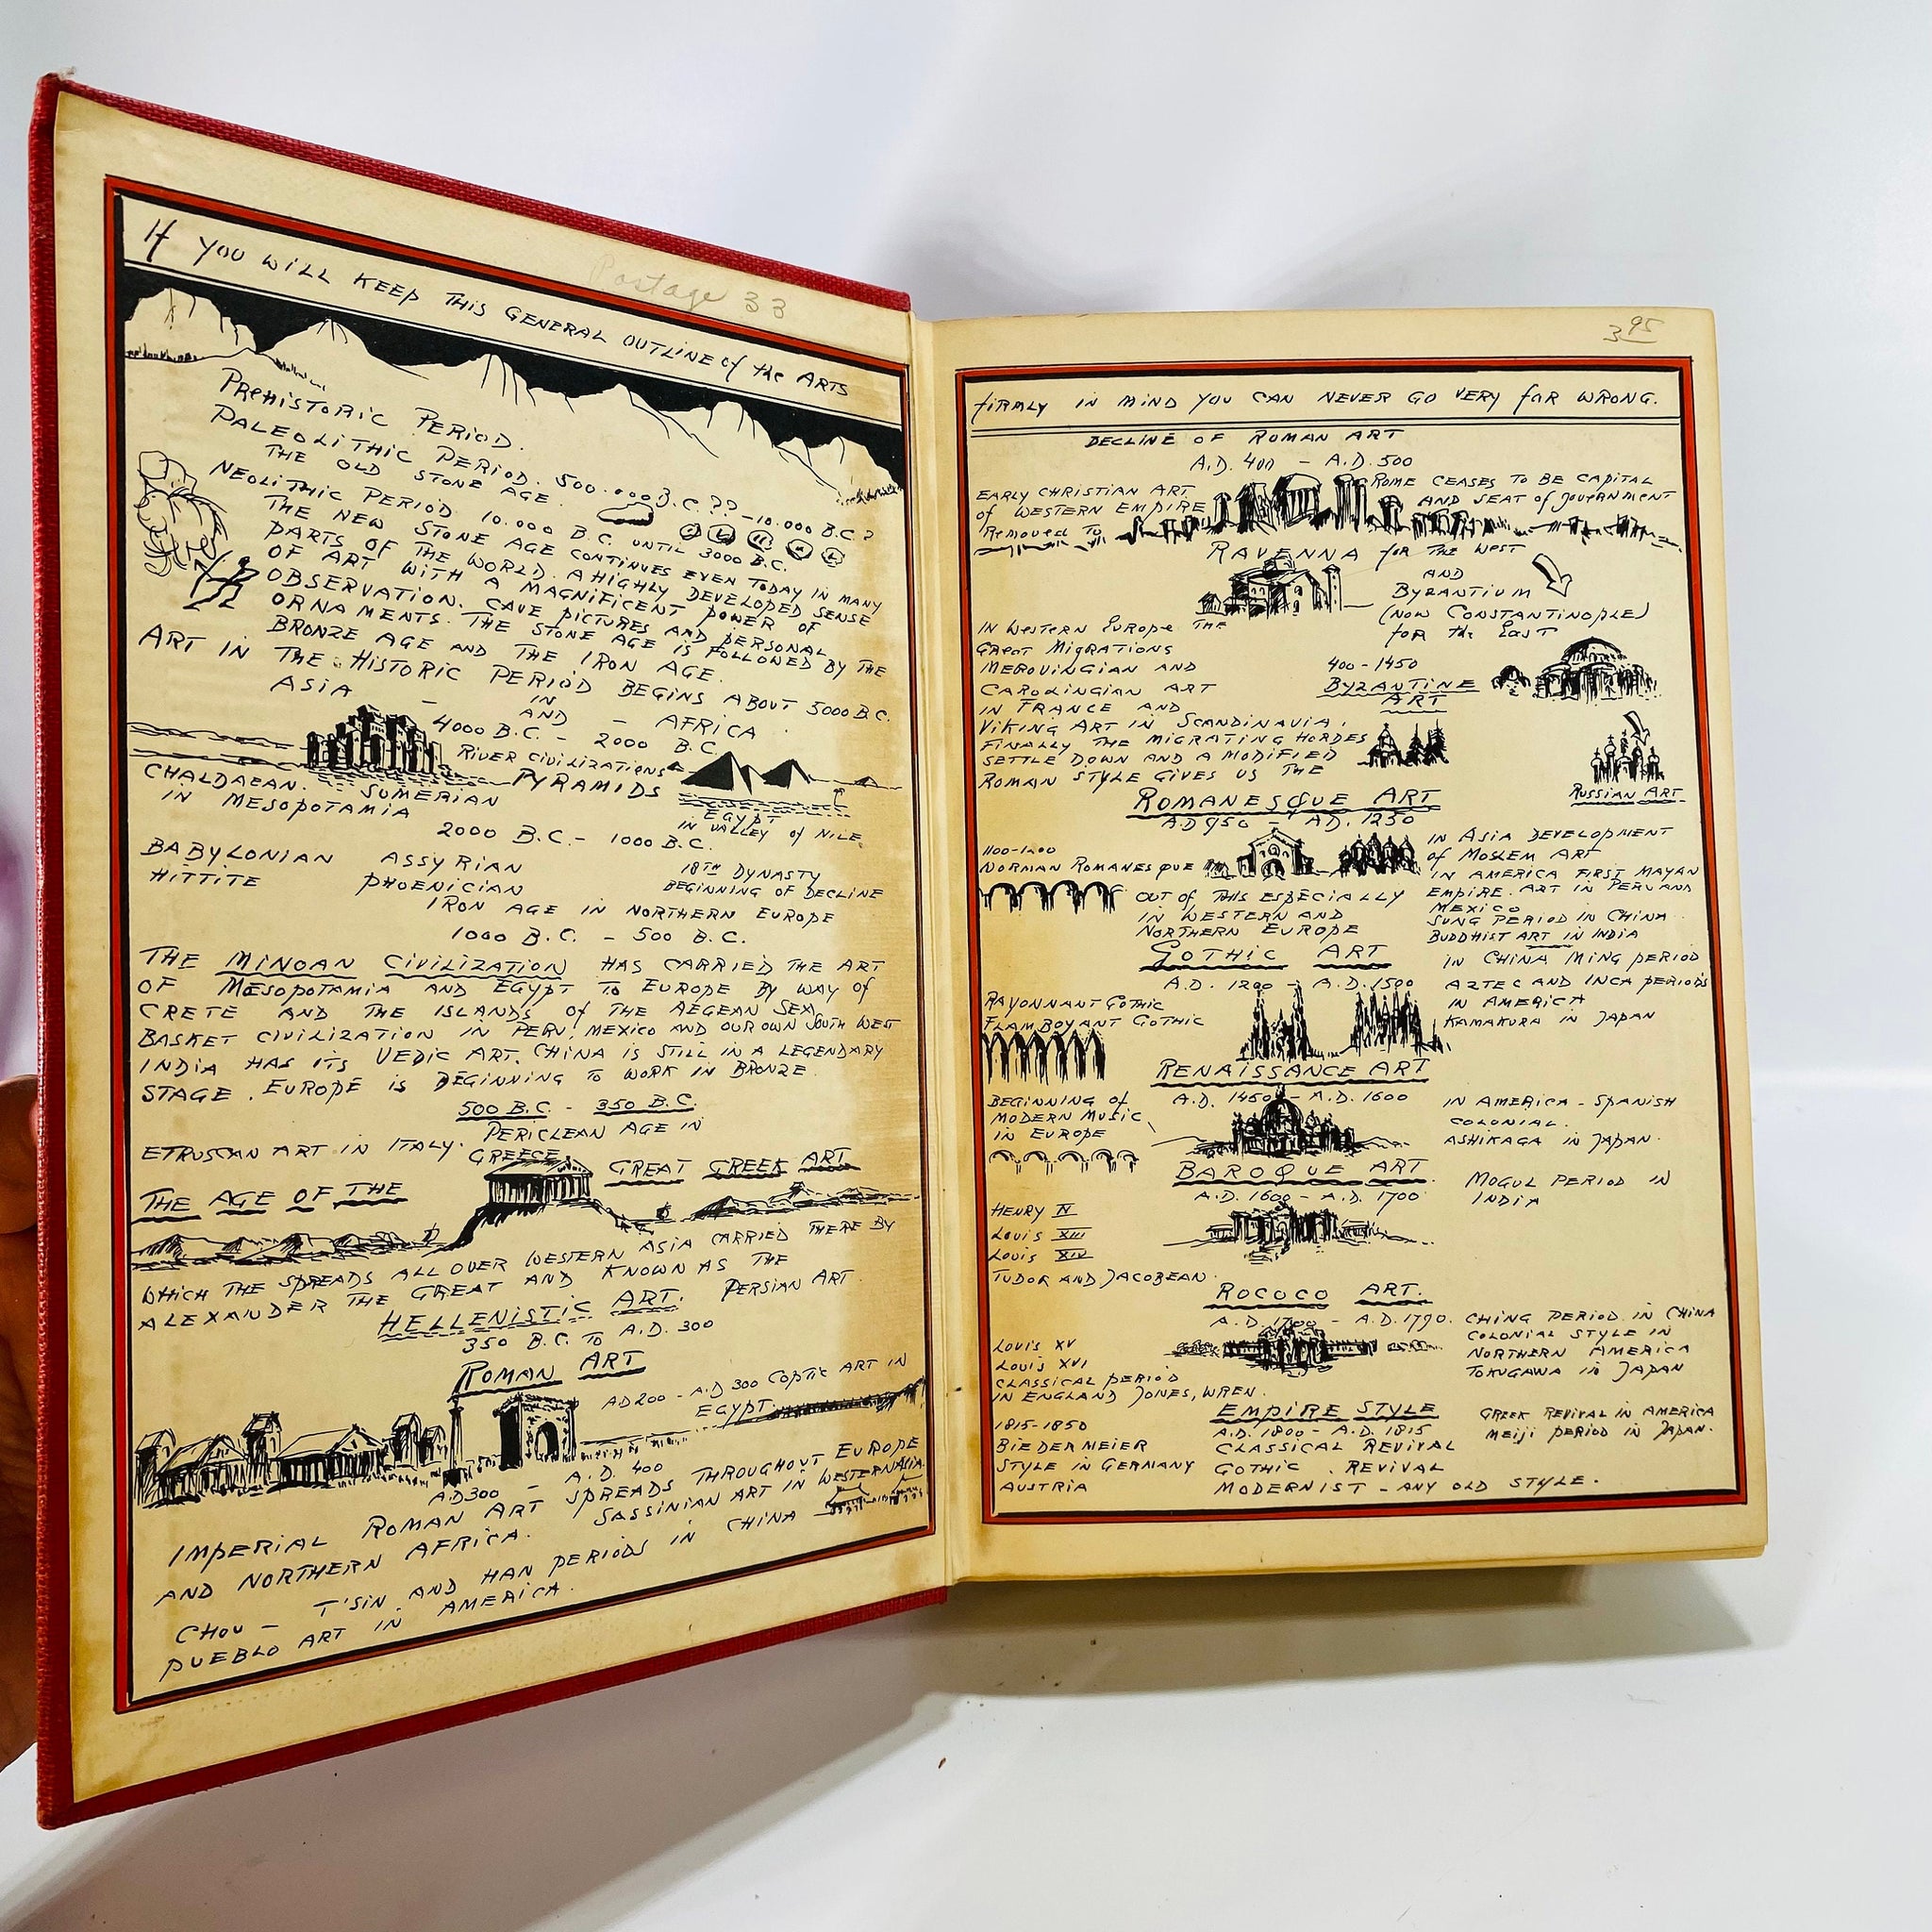 Postage 33
If YOU WILL KEEP THIS GENERAL OUTLINE of the ARTS
PREHISTORIC PERIOD.
PALEOLITHIC PERIOD. 500.000 B.C.?? - 10.000 B.C.?
THE OLD STONE AGE.
NEOLITHIC PERIOD 10.000 B.C. UNTIL 3000 B.C.
THE NEW STONE AGE CONTINUES EVEN TODAY IN MANY
PARTS OF THE WORLD. A HIGHLY DEVELOPED SENSE
OF ART WITH A MAGNIFICENT POWER OF
OBSERVATION. CAVE PICTURES AND PERSONAL
ORNAMENTS. THE STONE AGE IS FOLLOWED BY THE
BRONZE AGE AND THE IRON AGE.
ART IN THE HISTORIC PERIOD BEGINS ABOUT 5000 B.C.
IN
ASIA - AND - AFRICA
4000 B.C. - 2000 B.C
RIVER CIVILIZATIONS
PYRAMIDS
CHALDAEAN. SUMERIAN
IN MESOPOTAMIA
EGYPT
IN VALLEY of NILE
2000 B.C. - 1000 B.C.
BABYLONIAN ASSYRIAN 18TH DYNASTY
HITTITE PHOENICIAN BEGINNING OF DECLINE
IRON AGE IN NORTHERN EUROPE
1000 B.C. - 500 B.C.
THE MINOAN CIVILIZATION HAS CARRIED THE ART
OF MESOPOTAMIA AND EGYPT TO EUROPE BY WAY OF
CRETE AND THE ISLANDS of THE AEGEAN SEA
BASKET CIVILIZATION IN PERU, MEXICO AND OUR OWN SOUTH WEST
INDIA HAS ITS VEDIC ART. CHINA IS STILL IN A LEGENDARY
STAGE. EUROPE IS BEGINNING TO WORK IN BRONZE.
500 B.C. - 350 B.C.
PERICLEAN AGE IN
ETRUSCAN ART IN ITALY. GREECE
THE AGE OF THE GREAT GREEK ART
WHICH THE SPREADS ALL OVER WESTERN ASIA CARRIED THERE BY
ALEXANDER THE GREAT AND KNOWN AS THE
HELLENISTIC ART. PERSIAN ART.
350 B.C. TO A.D. 300
ROMAN ART
AD 200 - A.D 300 COPTIC ART IN
EGYPT
A.D 300 - A.D. 400
IMPERIAL ROMAN ART SPREADS THROUGHOUT EUROPE
AND NORTHERN AFRICA. SASSINIAN ART IN WESTERN ASIA.
CHOU - T'SIN AND HAN PERIODS IN CHINA
PUEBLO ART IN AMERICA.
3 95
FIRMLY IN MIND YOU CAN NEVER GO VERY FAR WRONG.
DECLINE OF ROMAN ART
A.D. 400 - A.D. 500
EARLY CHRISTIAN ART
of WESTERN EMPIRE
Removed TO
ROME CEASES TO BE CAPITAL
AND SEAT of GOVERNMENT
RAVENNA for THE WEST
AND
BYZANTIUM
(NOW CONSTANTINOPLE)
for the East
IN Western Europe THE
GREAT MIGRATIONS
MEROVINGIAN AND
CAROLINGIAN ART
IN FRANCE AND
VIKING ART IN SCANDINAVIA.
FINALLY THE MIGRATING HORDES
SETTLE DOWN AND A MODIFIED
ROMAN STYLE GIVES US THE
400-1450
BYZANTINE
ART
RUSSIAN ART.
ROMANESQUE ART
A.D 950 - A.D. 1250
1100-1200
NORMAN ROMANESQUE
OUT OF THIS ESPECIALLY
IN WESTERN AND
NORTHERN EUROPE
IN ASIA DEVELOPMENT
of MOSLEM ART
IN AMERICA FIRST MAYAN
EMPIRE. ART IN PERU AND
MEXICO
SUNG PERIOD IN CHINA
BUDDHIST ART IN INDIA
GOTHIC ART
A.D. 1200 - A.D. 1500
RAYONNANT GOTHIC
FLAMBOYANT GOTHIC
IN CHINA MING PERIOD
AZTEC AND INCA PERIODS
IN AMERICA
KAMAKURA IN JAPAN
RENAISSANCE ART
A.D. 1450 - A.D. 1600
BEGINNING of
MODERN MUSIC
IN EUROPE
IN AMERICA - SPANISH
COLONIAL.
ASHIKAGA IN JAPAN.
BAROQUE ART.
A.D. 1600 - A.D. 1700
MOGUL PERIOD IN
INDIA
HENRY IV
LOUIS XIII
LOUIS XIV
TUDOR AND JACOBEAN.
ROCOCO ART.
A.D. 1700 - A.D. 1790.
LOUIS XV
LOUIS XVI
CLASSICAL PERIOD
IN ENGLAND JONES, WREN.
CHING PERIOD IN CHINA
COLONIAL STYLE IN
NORTHERN AMERICA
TOKUGAWA IN JAPAN
EMPIRE STYLE
A.D. 1800 - A.D. 1815
1815-1850
BIEDERMEIER
STYLE IN GERMANY
AUSTRIA
CLASSICAL REVIVAL
GOTHIC. REVIVAL
MODERNIST - ANY OLD STYLE.
GREEK REVIVAL IN AMERICA
MEIJI PERIOD IN JAPAN.